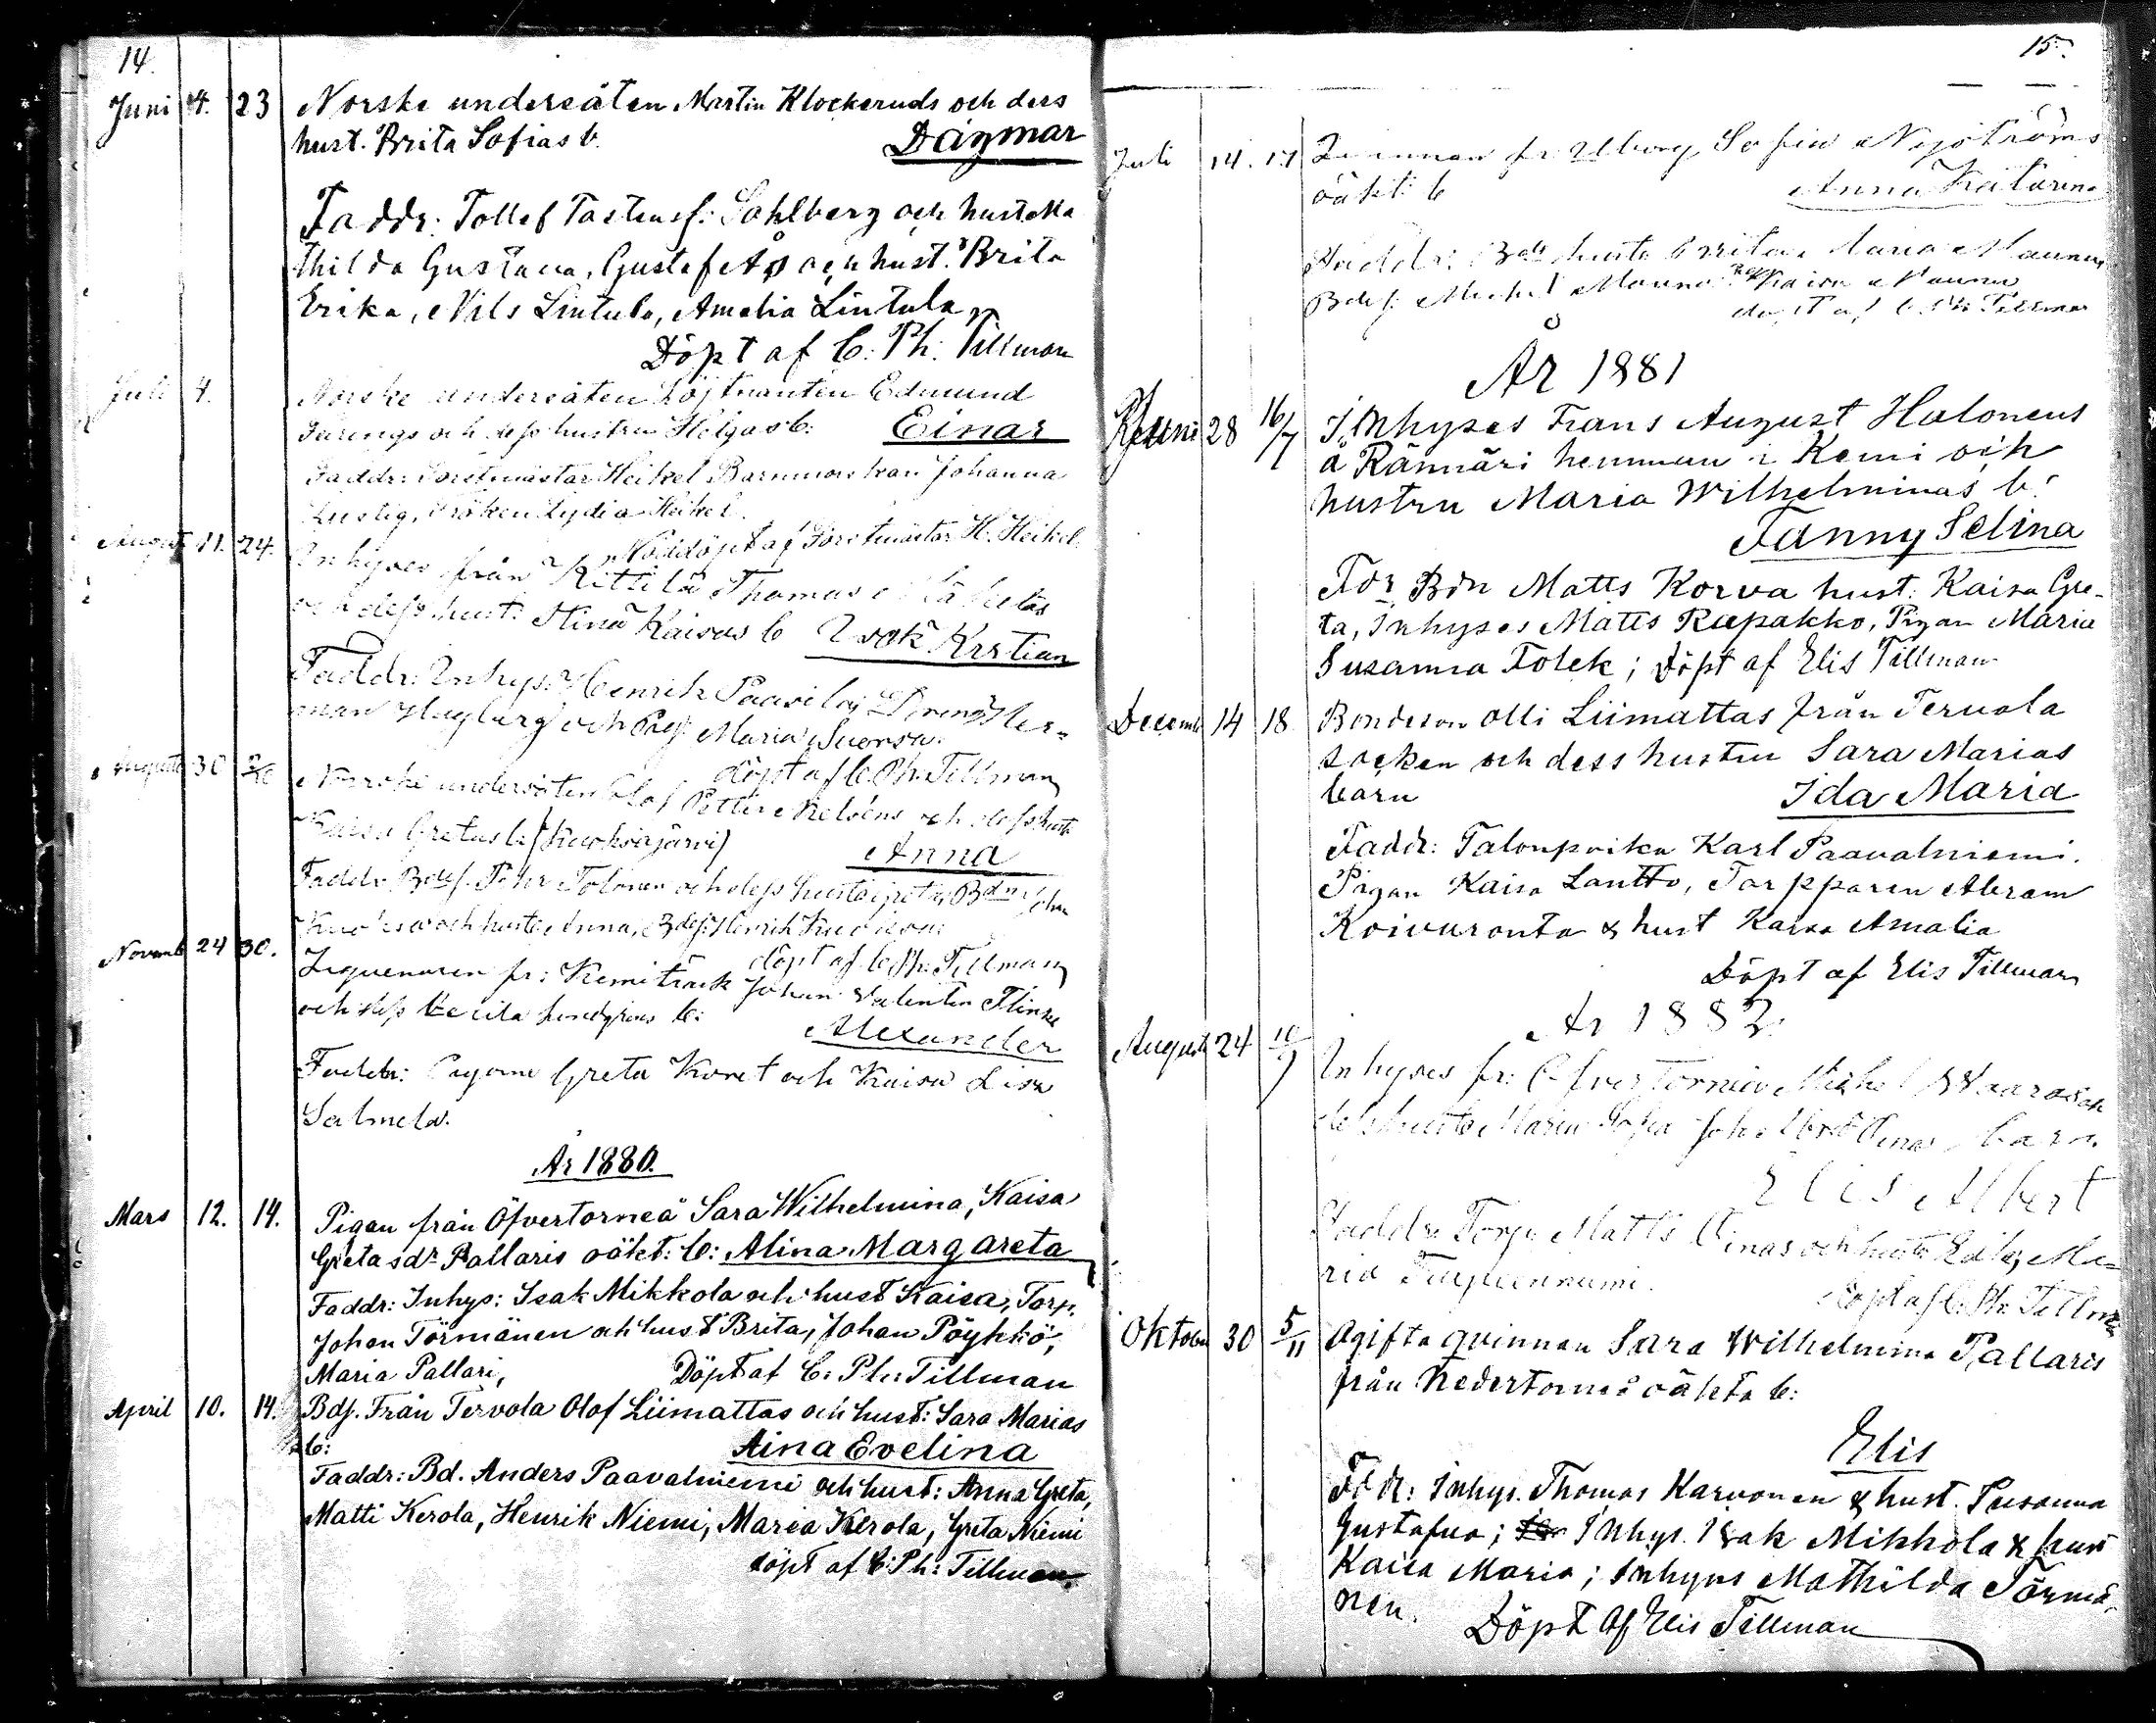 14.
Juni 4. 23 Norske undersåten Martin Klockeruds och ders
hust. Brita Sofias b. Dagmar
Faddr: Tollef Tostensf: Sahlberg och hust Ma
thilda Gustava, Gustaf Åp och hust. Brita
Erika, Nils Lintula, Amalia Lintula,
Döpt af C. Ph. Tillman
Juli 4. Norske undersåten Löjtnanten Edmund
Jarings och dess hustru Helgas b. Einar
Faddr: Forstmästar Heikel Barnmorskan Johanna
Lustig, Fröken Lydia Heikel.
Nöddöpt af Forstmästar H. Heikel.
August 11. 24. Inhyses från Kittilä Thomas
och dess hust: Stina Kaisas b Isak Kristian
Faddr: Inhys: Henrik Paavila, Dreng Her-
man Hagberg och Maria Suorsa.
döpt af C. Ph. Tillman
Augusti 30 Norske undersåten Olof Petter Nielsens och dess hust
Kaisa Gretas b. (Kuoksajärvi) Anna
Faddr. Bdes. Petter Tolonen och dess hust Greta, Bdn Johan
och hust: Anna, Bdes: Henrik
döpt af C. Ph. Tillman
Novemb 24 30. Ziguenaren fr: Kemiträsk Johan Valentin Flinks
och dess Cecila Lindgrens b: Alexander
Faddr: Pigorne Greta Koret och Kaisa Lisa
Salmela.
År 1880.
Mars 12. 14. Pigan från Öfvertorneå Sara Wilhelmina, Kaisa
Greta sdr Pallaris oäkt: b: Alina Margareta
Faddr: Inhys: Isak Mikkola och hust Kaisa, Torp.
Johan Törmänen och hust Brita, Johan Pöykkö,
Maria Pallari, Döpt af C. Ph: Tillman
April 10. 14. Bds. Från Tervola Olof Liimattas och hust: Sara Marias
b: Aina Evelina
Faddr: Bd. Anders Paavalniemi och hust: Anna Greta,
Matti Kerola, Henrik Niemi, Maria Kerola, Greta Niemi
döpt af C: Ph: Tillman.
15.
Juli 14. 17 Qvinnan fr: Uleborg Sofia Nyströms
oäkt: b Anna Katarina
Faddr: Bde hust Brita Maria Maunu,
Bdes: Michel Maunu Kaisa Maunu
döpt af C. Ph Tillman
År 1881
Juni 28 16/7 Inhyses Frans August Halonens
å Rännäri hemman i Kemi och
hustru Maria Wilhelminas b:
Fanny Selina
Fdr Bdn Matts Korva hust: Kaisa Gre-
ta, Inhyses Matts Rupakko, Pigan Maria
Susanna Tolek; Döpt af Elis Tillman
Decemb 14 18 Bondeson Olli Liimattas från Tervola
socken och dess hustru Sara Marias
barn Ida Maria
Faddr: Talonpoika Karl Paavalniemi.
Pigan Kaisa Lantto, Torpparen Abram
Koivuranta & hust Kaisa Amalia
Döpt af Elis Tillman
År 1882.
Augusti 24 10/9 Inhyses fr: Öfvertorneå Mickel Waaras och
dess hust Maria Sofia Barn
Elis Albert
Faddr: Torp: Matts Oinas och hust Edla, Ma-
ria
Döpt af C. Ph. Tillman
Oktober 30 5/11 Ogifta qvinnan Sara Wilhelmina Pallaris
från Nedertorneå oäkta b:
Elis
Fdr: Inhys. Thomas Karvonen & hust. Susanna
Gustafva; Inhys. Isak Mikkola & hust
Kaisa Maria; Inhyses Mathilda Törmä-
nen. Döpt af Elis Tillman